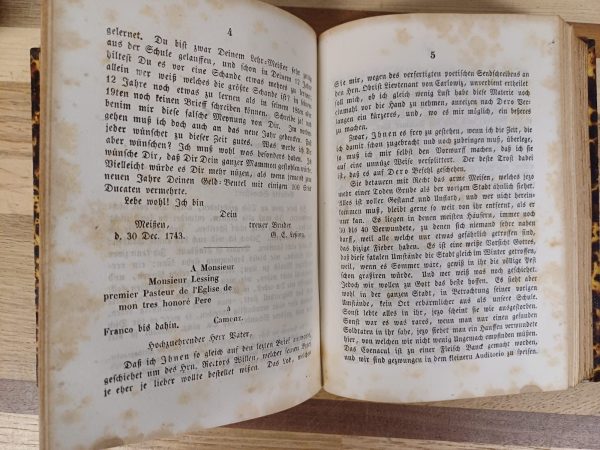 4
gelernet. Du bist zwar Deinem Lehr-Meister sehr zeitig
aus der Schule gelauffen, und schon in Deinem 12 Jahre
hieltest Du es vor eine Schande etwas mehres zu lernen;
allein wer weiß welches die größte Schande ist? in seinem
12 Jahre noch etwas zu lernen als in seinem 18ten oder
19ten noch keinen Brieff schreiben können. Schreibe ja! und
benim mir diese falsche Meynung von Dir. Im vorbey
gehen muß ich doch auch an das neue Jahr gedencken. Fast
jeder wünschet zu dieser Zeit gutes. Was werde ich Dir
aber wünschen? Ich muß wohl was besonders haben. Ich
wünsche Dir, daß Dir Dein ganzer Mammon gestohlen würde.
Vielleicht würde es Dir mehr nüzen, als wenn jemand zum
neuen Jahre Deinen Geld-Beutel mit einigen 100 Stück
Ducaten vermehrte.
Lebe wohl! Ich bin
Dein
Meißen, treuer Bruder
d. 30 Dec. 1743. G. E. Leßing.
A Monsieur
Monsieur Lessing
premier Pasteur de l'Eglise de
mon tres honoré Pere
à
Franco bis dahin. Camenz.
Hochzuehrender Herr Vater,
Daß ich Ihnen so gleich auf den lezten Brief antworte,
geschiehet um des Hrn. Rectors Willen, welcher seinen Brief
je eher je lieber wollte bestellet wißen. Das Lob, welches
5
Sie mir, wegen des verfertigten poetischen Sendschreibens an
den Hrn. Obrist Lieutenant von Carlowiz, unverdient ertheilet
soll mich, ob ich gleich wenig Lust habe diese Materie noch
einmahl vor die Hand zu nehmen, anreizen nach Dero Ver-
langen ein kürzeres, und, wo es mir möglich, ein beßeres
zu machen.
Zwar, Ihnen es frey zu gestehen, wenn ich die Zeit, die
ich damit schon zugebracht und noch zubringen muß, überlege,
so muß ich mir selbst den Vorwurff machen, daß ich sie
auf eine unnüze Weise versplittert. Der beste Trost dabei
ist, daß es auf Dero Befehl geschehen.
Sie betauern mit Recht das arme Meißen, welches jezo
mehr einer Toden Grube als der vorigen Stadt ähnlich siehet.
Alles ist voller Gestanck und Unflath, und wer nicht herein
kommen muß, bleibt gerne so weit von ihr entfernt, als er
nur kan. Es liegen in denen meisten Häusern, immer noch
30 bis 40 Verwundete, zu denen sich niemand sehre nahen
darff, weil alle welche nur etwas gefährlich getroffen sind,
das hizige Fieber haben. Es ist eine weise Vorsicht Gottes,
daß diese fatalen Umstände die Stadt gleich im Winter getroffen,
weil, wenn es Sommer wäre, gewiß in ihr die völlige Pest
schon graßiren würde. Und wer weiß was noch geschiehet.
Jedoch wir wollen zu Gott das beste hoffen. Es sieht aber
wohl in der ganzen Stadt, in Betrachtung seiner vorigen
Umstände, kein Ort erbärmlicher aus als unsere Schule.
Sonst lebte alles in ihr, jezo scheint sie wie ausgestorben.
Sonst war es was rares, wenn man nur einen gesunden
Soldaten in ihr sahe, jezo siehet man ein Hauffen verwundete
hier, von welchen wir nicht wenig Ungemach empfinden müßen.
Das Coenacul ist zu einer Fleisch Banck gemacht worden,
und wir sind gezwungen in dem kleinern Auditorio zu speisen.